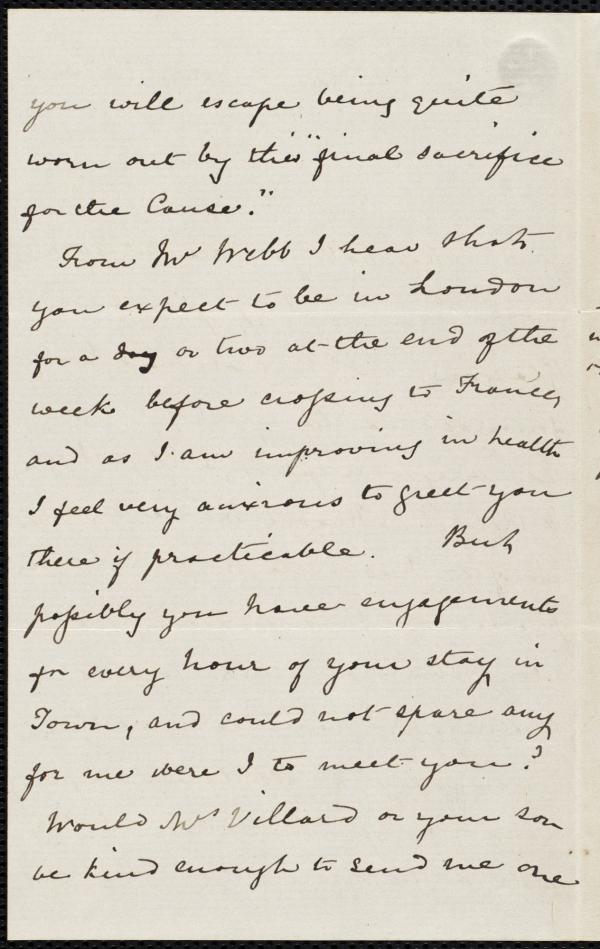 you will escape being quite
worn out by this "final sacrifice
for the Cause."
From Mr Webb I hear that
you expect to be in London
for a day or two at the end of the
week before crossing to France,
and as I am improving in health
I feel very anxious to greet you
there if practicable. But
possibly you have engagements
for every hour of your stay in
Town, and could not spare any
for me were I to meet you?
Would Mr Villard or your son
be kind enough to send me one